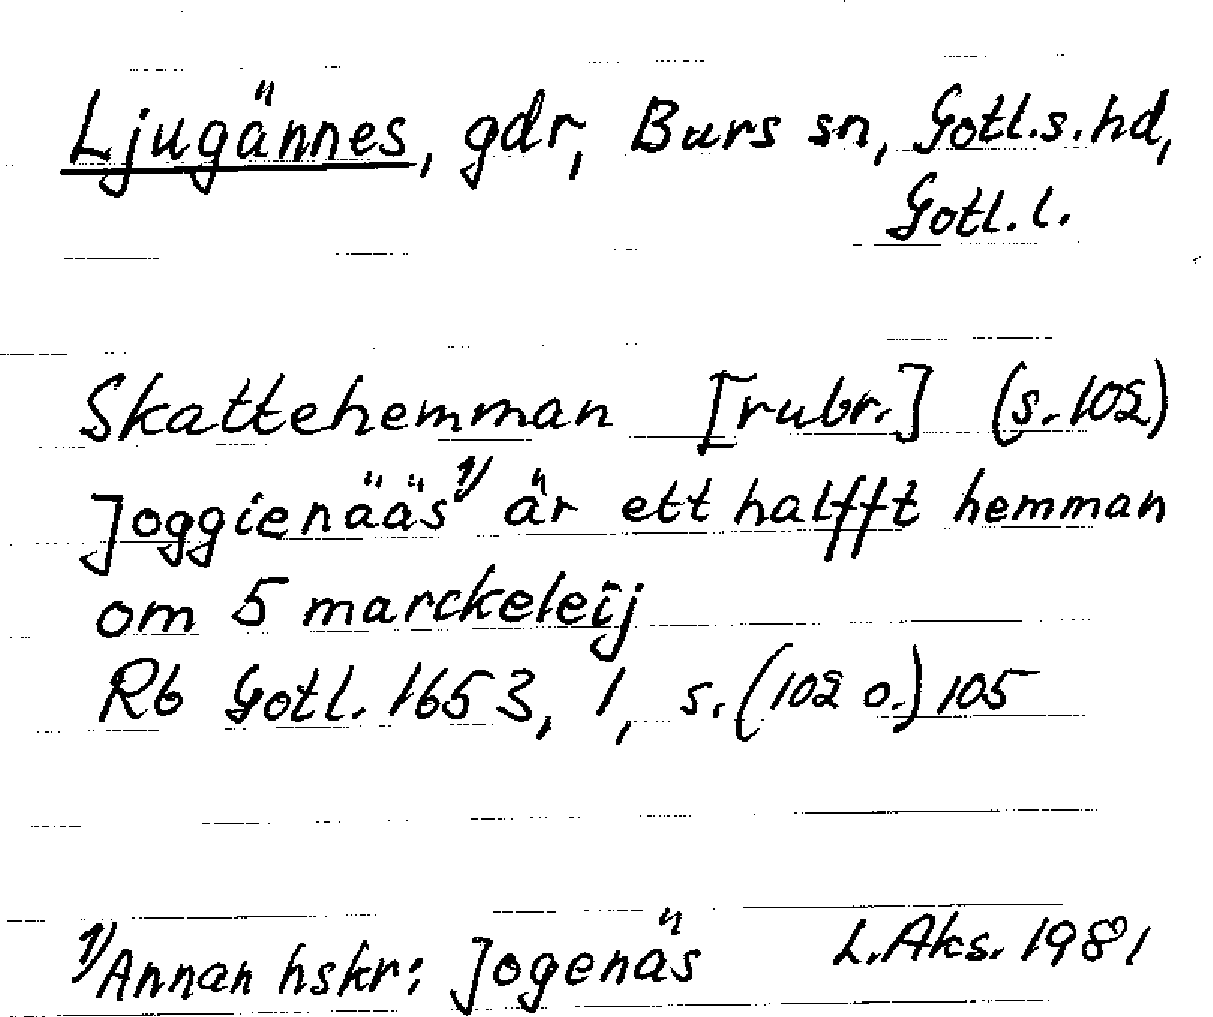 Ljugännes, gdr, Burs sn, Gotl.s.hd,
Gotl. l.
Skattehemman [rubr.] (s. 102)
Joggienääs 1) är ett halfft hemman
om 5 marckeleij
Rb Gotl. 1653, 1, s. (102 o.) 105
1) Annan hskr: Jogenäs L. Aks. 1981